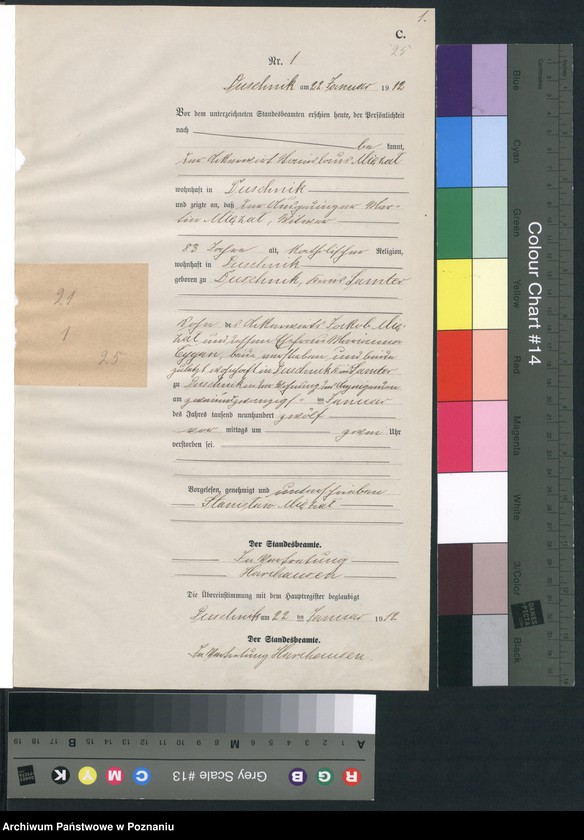 1.
C.
25
Nr. 1
Duschnik am 22 Januar 1912
Vor dem unterzeichneten Standesbeamten erschien heute, der Persönlichkeit
nach be kannt,
der Stanislaus Michal
wohnhaft in Duschnik
und zeigte an, daß der Auszüinger Mar-
tin Michal, Witwer
83 Jahre alt, katholischer Religion,
wohnhaft in Duschnik
geboren zu Duschnik, Kreis Samter
Sohn des Jakob Mi-
chal und dessen Ehefrau Marianna
beide verstorben und beide
zuletzt wohnhaft in Duschnik Kreis Samter
zu Duschnik in der Wohnung des
am Januar
des Jahres tausend neunhundert zwölf
vor mittags um Uhr
verstorben sei.
Vorgelesen, genehmigt und unterschrieben
Stanisław Michał
Der Standesbeamte.
In Vertretung
Harhausen
Die Übereinstimmung mit dem Hauptregister beglaubigt
Duschnik am 22 ten Januar 1912
Der Standesbeamte.
In Vertretung Harhausen.
21
1
25
Colour Chart #14
Blue
Cyan
Green
Yellow
Red
Magenta
White
3/Color
Black
Centimetres
DANES PICTA
Grey Scale #13
A 1 2 3 4 5 6 M 8 9 10 11 12 13 14 15 B 17 18 19
R G B C M Y K
Archiwum Państwowe w Poznaniu